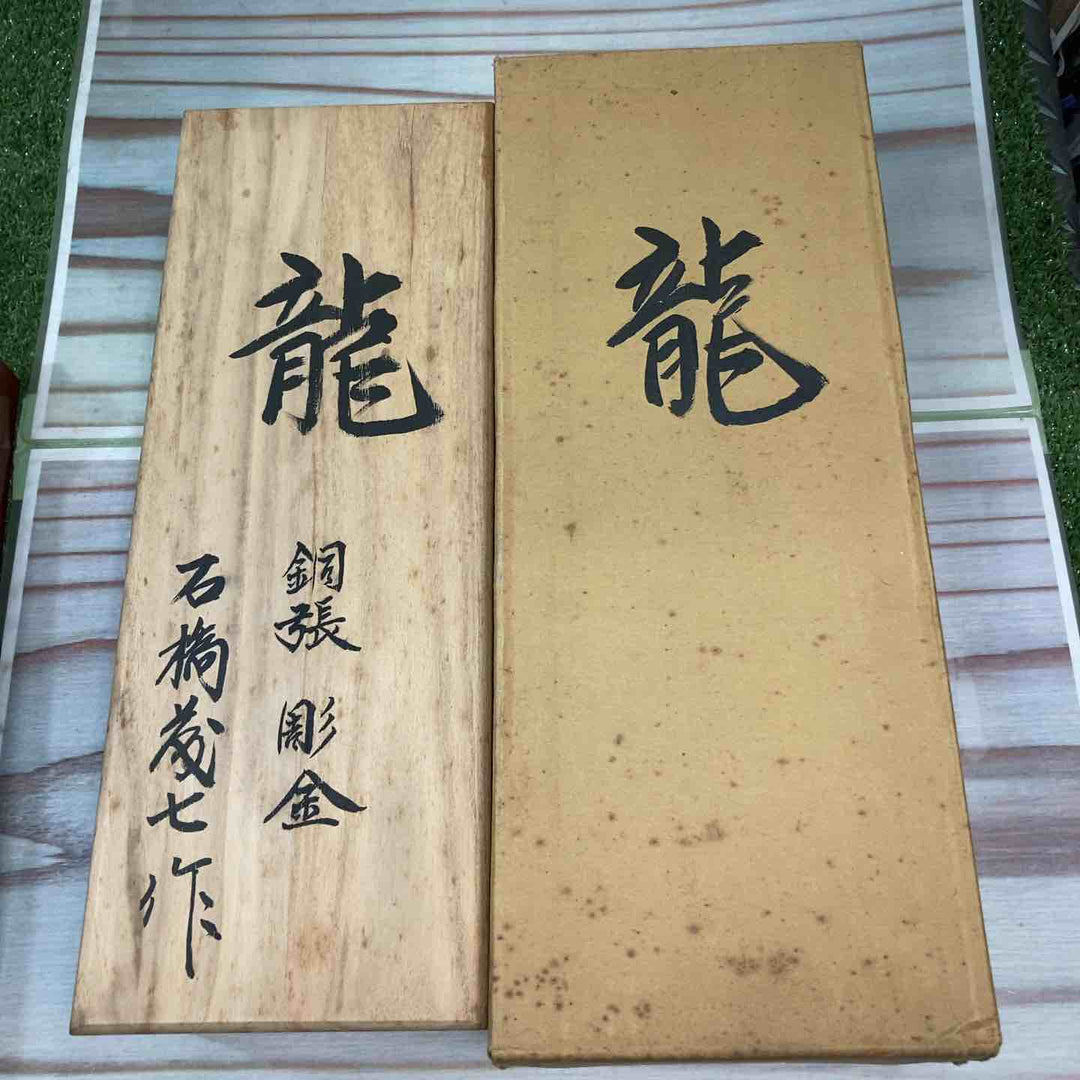 龍
銅張 彫金
石橋茂七作
龍